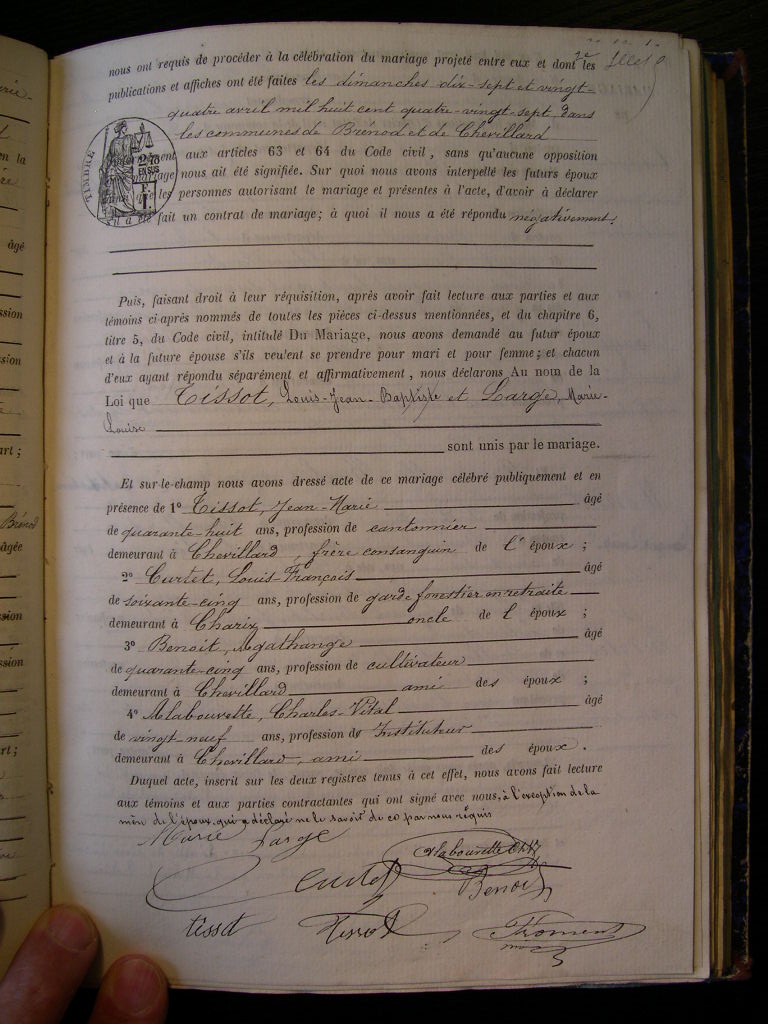 nous ont requis de procéder à la célébration du mariage projeté entre eux et dont les
publications et affiches ont été faites les dimanches dix-sept et vingt-
quatre avril mil huit cent quatre-vingt-sept, dans
les communes de Brénod et de Chevillard
TIMBRE
aux articles 63 et 64 du Code civil, sans qu'aucune opposition
mariage nous ait été signifiée. Sur quoi nous avons interpellé les futurs époux
les personnes autorisant le mariage et présentes à l'acte, d'avoir à déclarer
s'il a été fait un contrat de mariage; à quoi il nous a été répondu négativement.
Puis, faisant droit à leur réquisition, après avoir fait lecture aux parties et aux
témoins ci-après nommés de toutes les pièces ci-dessus mentionnées, et du chapitre 6,
titre 5, du Code civil, intitulé Du Mariage, nous avons demandé au futur époux
et à la future épouse s'ils veulent se prendre pour mari et pour femme; et chacun
d'eux ayant répondu séparément et affirmativement, nous déclarons Au nom de la
Loi que Tissot, Louis-Jean-Baptiste et Large, Marie-
Louise
sont unis par le mariage.
Et sur-le-champ nous avons dressé acte de ce mariage célébré publiquement et en
présence de 1° Tissot, Jean-Marie âgé
de quarante-huit ans, profession de cantonnier
demeurant à Chevillard, frère consanguin de l'époux;
2° Curtet, Louis-François âgé
de soixante-cinq ans, profession de garde forestier en retraite
demeurant à Charix oncle de l époux;
3° Benoit, Agathange âgé
de quarante-cinq ans, profession de cultivateur
demeurant à Chevillard ami des époux;
4° Alabouvette, Charles-Vital âgé
de vingt-neuf ans, profession d' Instituteur
demeurant à Chevillard, ami des époux.
Duquel acte, inscrit sur les deux registres tenus à cet effet, nous avons fait lecture
aux témoins et aux parties contractantes qui ont signé avec nous, à l'exception de la
mère de l'époux qui a déclaré ne le savoir de ce par nous requis
Marie Large
Alabouvette Ch. V.
Curtet
Benoit
tissot
Tissot
Froment